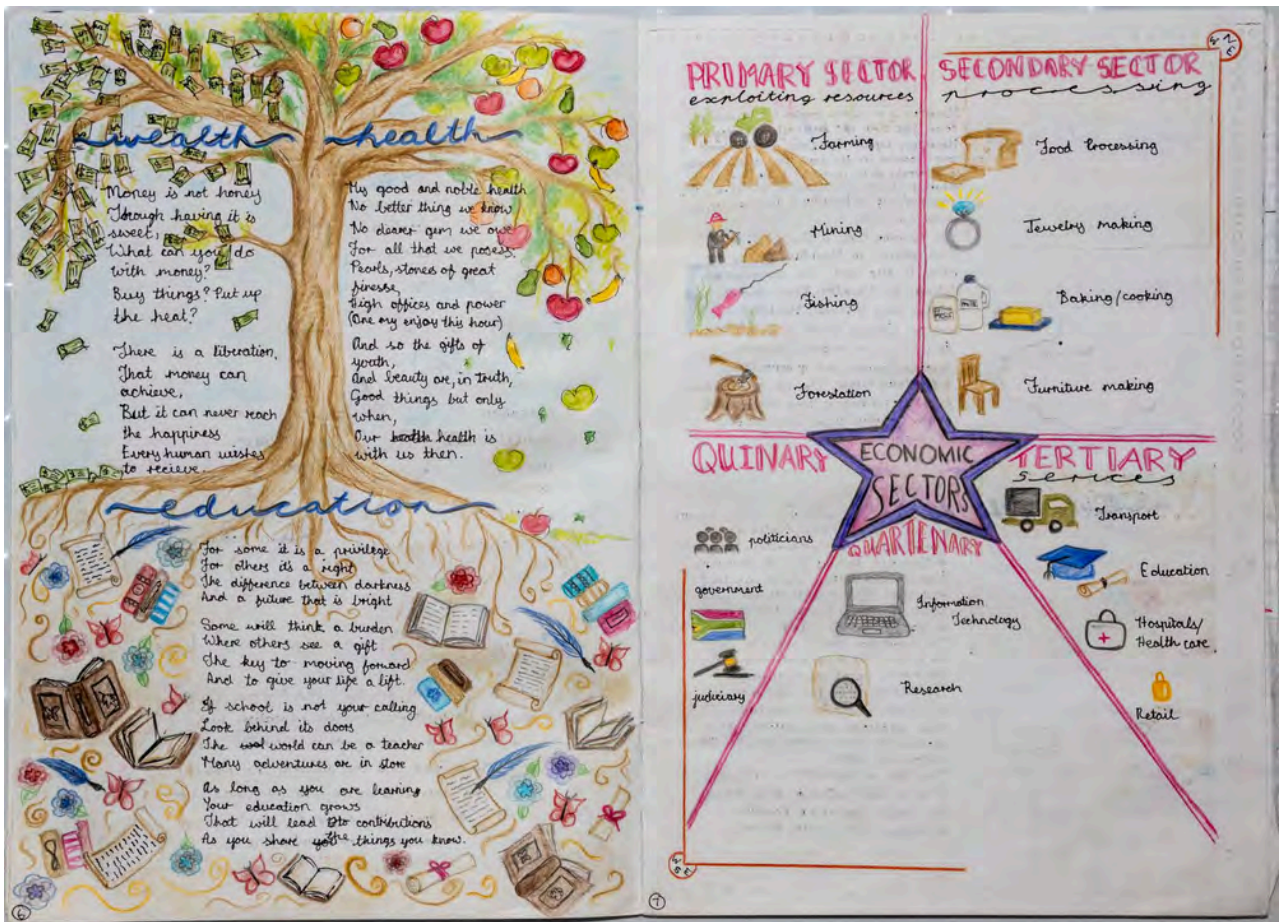 wealth
Money is not honey
Through having it is
sweet,
What can you do
with money?
Buy things? Put up
the heat?
There is a liberation,
That money can
achieve,
But it can never reach
the happiness
Every human wishes
to recieve.
health
My good and noble health
No better thing we know
No dearer gem we owe
For all that we posess.
Pearls, stones of great
finesse,
High offices and power
(One my enjoy this hour)
And so the gifts of
youth,
And beauty are, in truth,
Good things but only
when,
Our health health is
with us then.
education
For some it is a privilege
For others it's a right
The difference between darkness
And a future that is bright
Some will think a burden
Where others see a gift
The key to moving forward
And to give your life a lift.
If school is not your calling
Look behind its doors
The world can be a teacher
Many adventures are in store
As long as you are learning
Your education grows
That will lead to contributions
As you share the things you know.
6
PRIMARY SECTOR
exploiting resources
Farming
Mining
Fishing
Forestation
SECONDARY SECTOR
processing
Food Processing
Jewelry making
Baking/cooking
Furniture making
ECONOMIC
SECTORS
QUINARY
politicians
government
judiciary
QUARTENARY
Information
Technology
Research
TERTIARY
serices
Transport
Education
Hospitals/
Health care
Retail
7